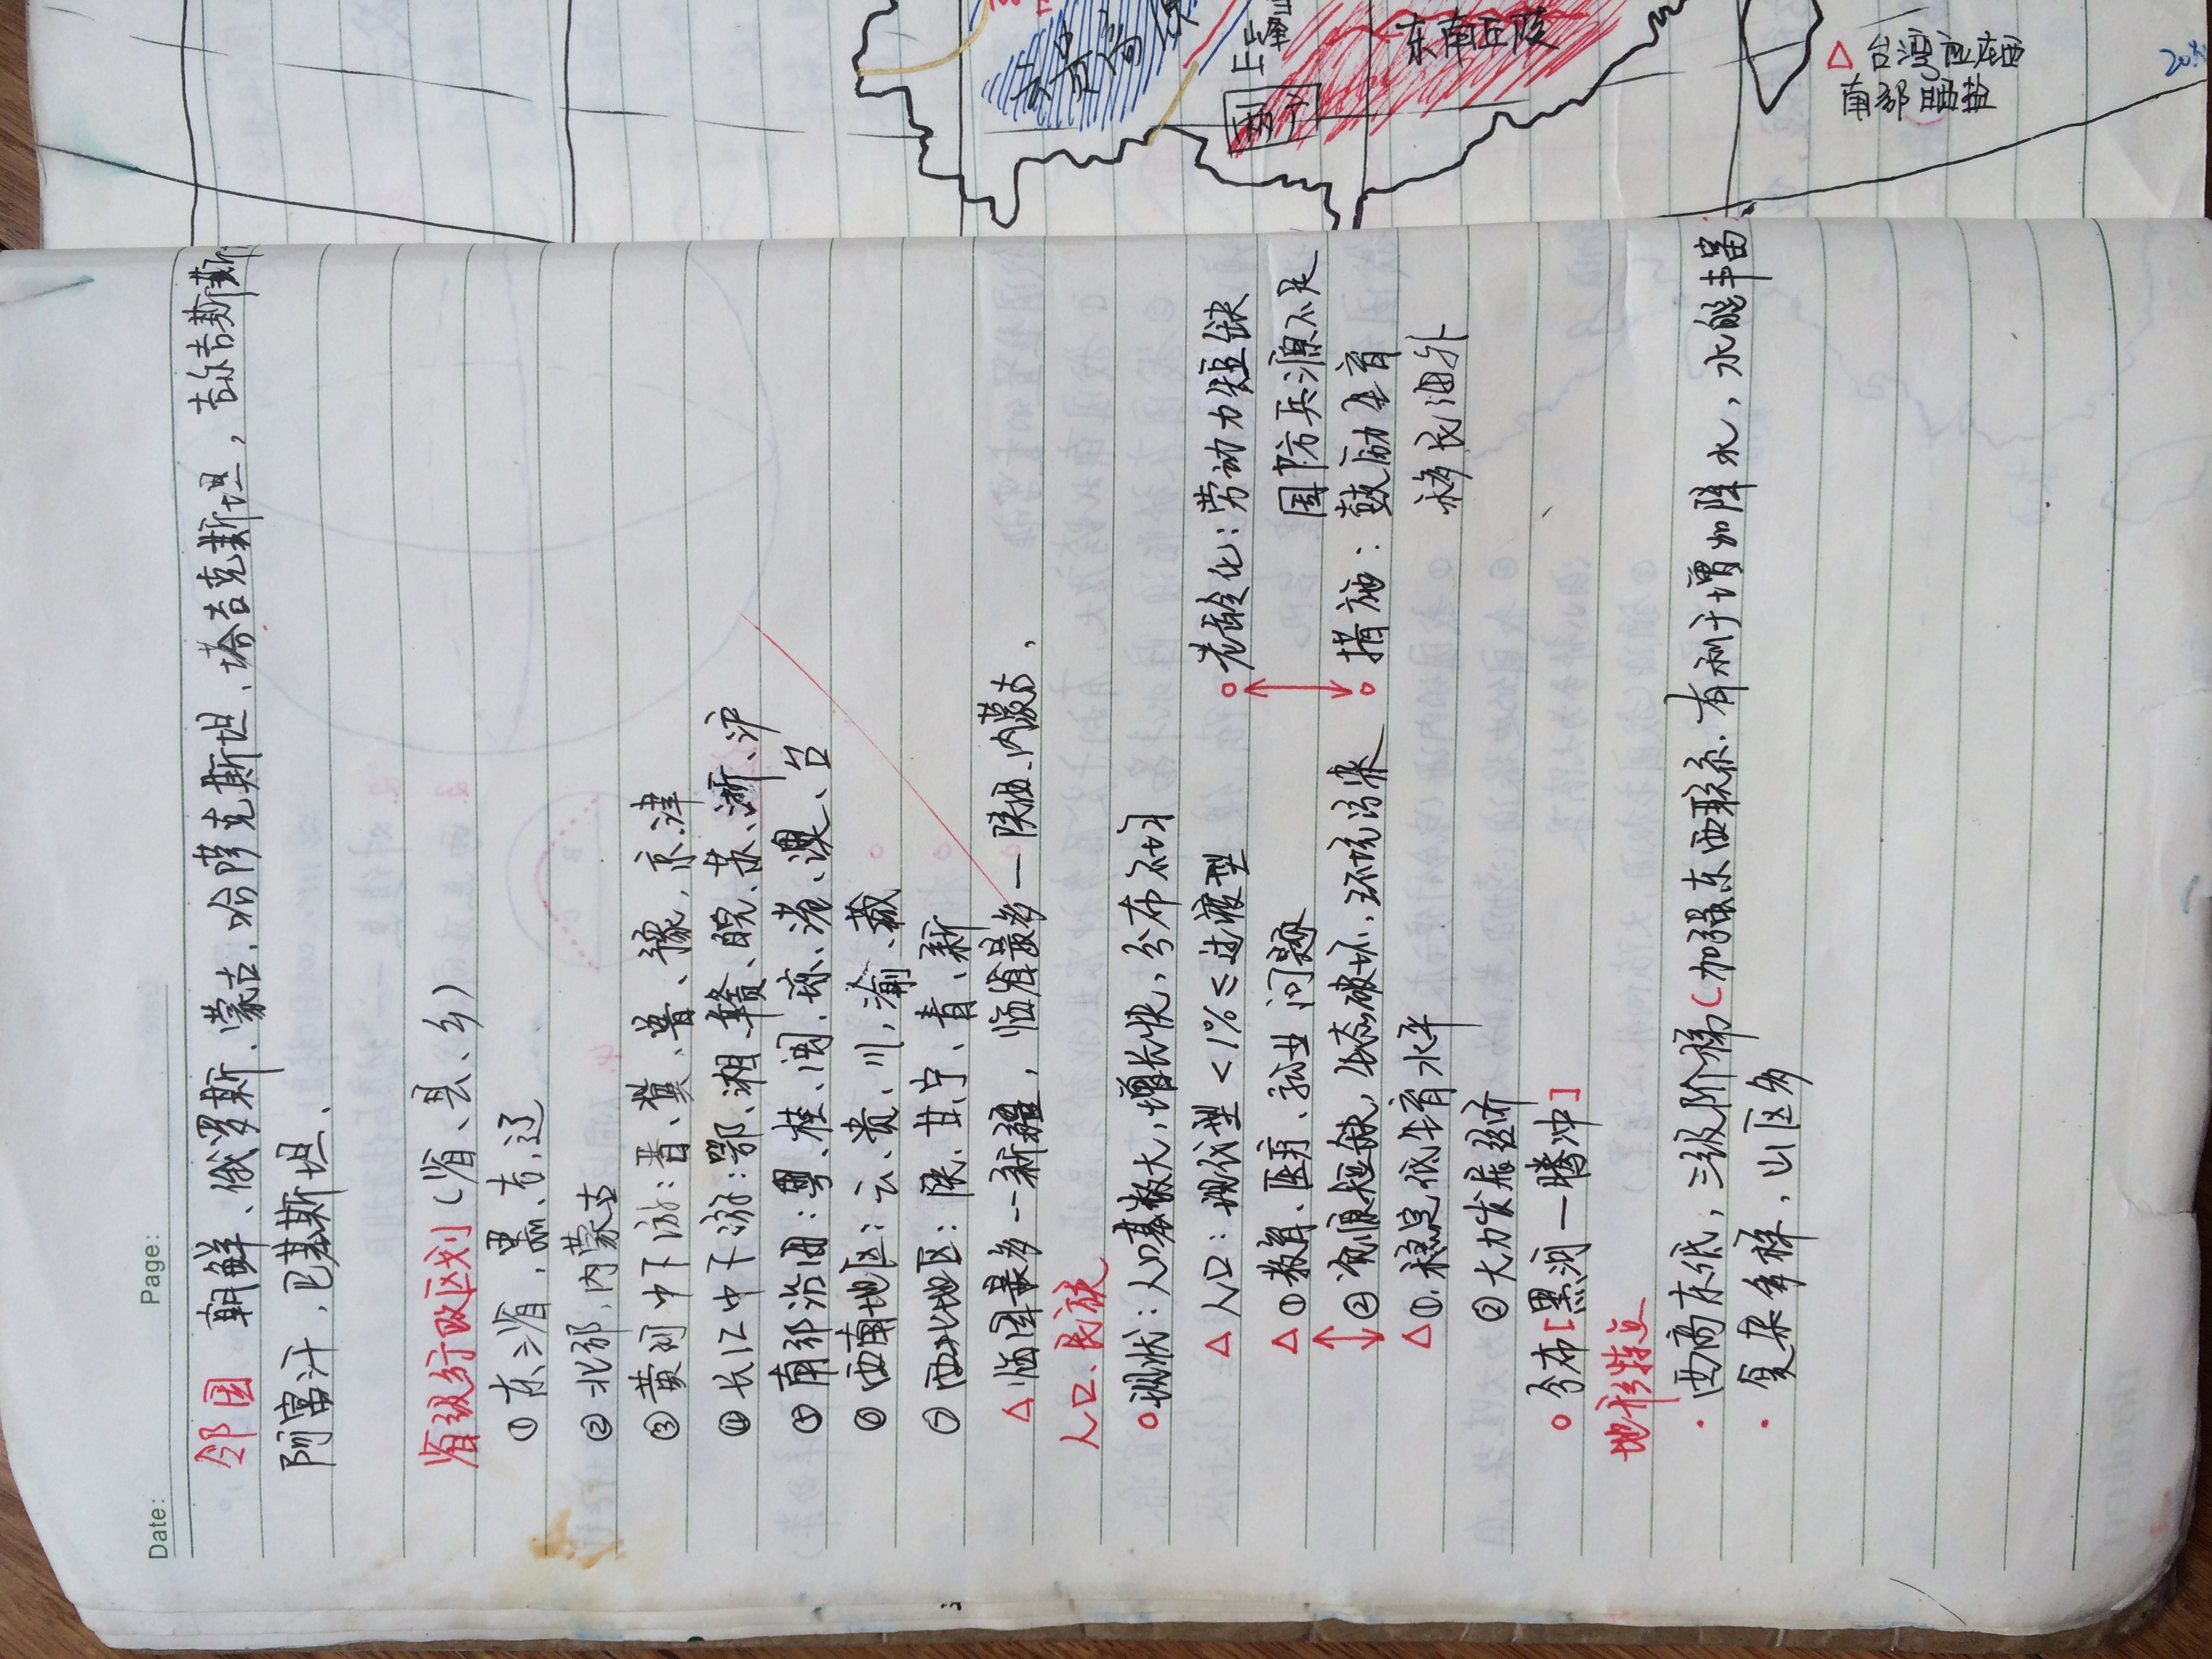 Date: Page:
邻国 朝鲜、俄罗斯、蒙古、哈萨克斯坦、塔吉克斯坦,吉尔吉斯斯
阿富汗,巴基斯坦、
省级行政区划(省、县、乡)
①东三省,黑、吉、辽
②北部,内蒙古
③黄河中下游:晋、冀、鲁、豫,京、津
④长江中下游:鄂、湘、赣、皖、苏、浙、沪
⑤南部沿海:粤、桂、闽、琼、港、澳、台
⑥西南地区:云、贵、川,渝、藏
⑦西北地区:陕、甘、宁、青、新
△临国最多--新疆,临省最多—陕西、内蒙古,
人口、民族
现状:人口基数大,增长快,分布不均
△人口:现代型<1%≤过渡型
老龄化:劳动力短缺
△①教育、医疗、就业问题
国防兵源不足
②资源短缺,生态破坏,环境污染
措施:鼓励生育
△①.稳定低生育水平
移民海外
②大力发展经济
分布[黑河—腾冲]
地形特点
·西高东低,三级阶梯(加强东西联系.有利于增加降水,水能丰富
·复杂多样,山区多
东南丘陵
△台湾
南部